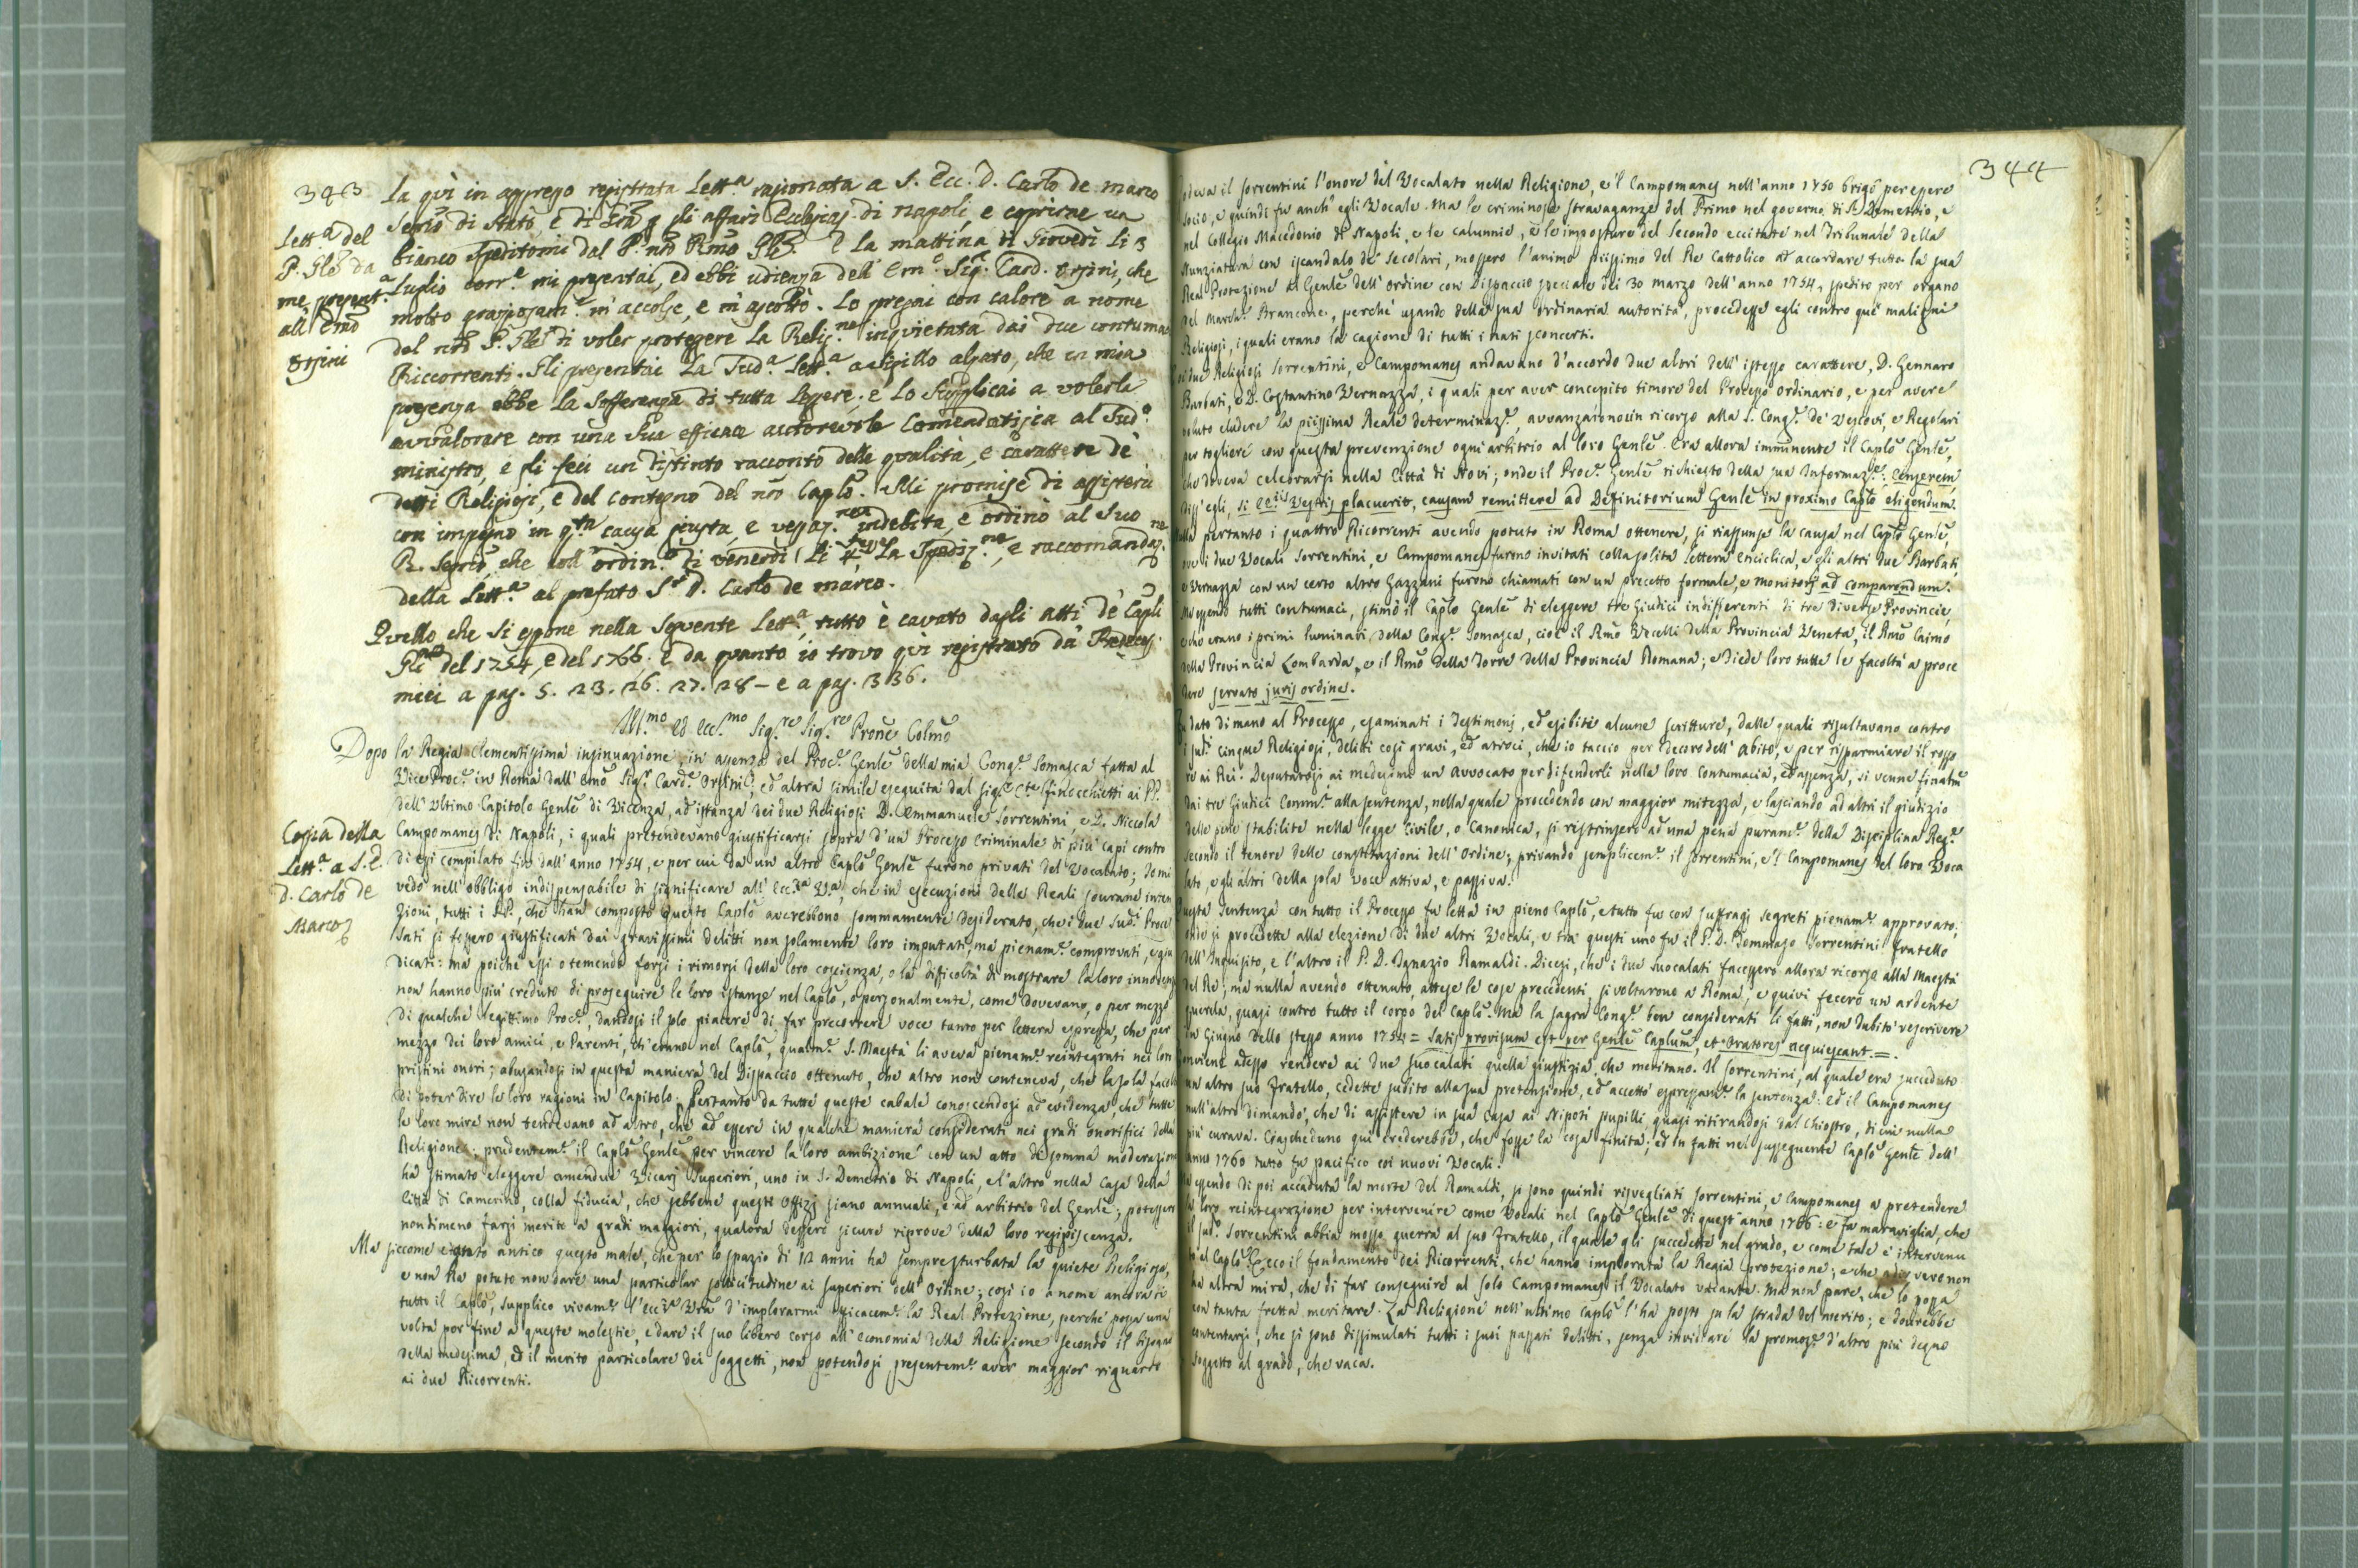 343
la qui in appreso registrata Lett.a ragionata a S. Ecc. D. Carlo de marco
Segrio di Stato, e di Gra p gli affari Ecclesias. di napoli, e copriene un
bianco speditomi dal P. nro Rmo Gle. E la mattina di Giovedì li 3
Luglio corr.e mi presentai, ed ebbi udienza dell' Em.o Sig.r Card. Orsini, che
molto graziosam.e m'accolse, e m'ascoltò. Lo pregai con calore a nome
del nro P. Gle di voler proteggere la Relig.ne inquietata dai due contumaci
Riccorrenti. Gli presentai la Sud.a Lett.a a sigillo alzato, che in mia
presenza ebbe la sofferenza di tutta leggere; e lo supplicai a volerla
avvalorare con una sua efficace autorevole Comendatizia al Sud.o
ministro, e gli feci un distinto racconto delle qualità, e carattere de
detti Religiosi, e del contegno del nro Caplo. Mi promise di assistere
con impegno in q.ta causa giusta, e vessaz.ne indebita, e ordinò al suo
R. Segrio, che coll' ordin.o di venerdì li 4 La Spediz.ne, e raccomandaz.ne
della Lett.a al prefato S.r D. Carlo de marco.
Quello che si espone nella seguente Lett.a, tutto è cavato dagli atti de Capli
Gli del 1754, e del 1766. E da quanto io trovo qui registrato da Predeces.
miei a pag. 5. 23. 26. 27. 28 - e a pag. 336.
Lett.a del
P. Gle da
me present.a
all' Emo
Orsini
Ill.mo ed Ecc.mo Sig.re Sig.re Prone Colmo
Dopo la Regia Clementissima insinuazione, in assenza del Proc.e Genle della mia Cong.e Somasca fatta al
Vice Proc.e in Roma dall' Emo Sig.r Card.e Orsini, ed altra simile eseguita dal Sig.r C.te Finocchietti ai PP.
dell' Ultimo Capitolo Genle di Vicenza, ad istanza dei due Religiosi D. Emmanuele Sorrentini, e D. Niccola
Campomanes di Napoli, i quali pretendevano giustificarsi sopra d'un Processo Criminale di più capi contro
di essi compilato fin dall' anno 1754, e per cui da un altro Caplo Genle furono privati del Vocalato; Io mi
vedo nell' obbligo indispensabile di significare all' Ecc.za V.a, che in esecuzione delle Reali sovrane inten
zioni, tutti i PP. che han composto questo Caplo averebbono sommamente desiderato, che i due Sud.i Proces
sati si fossero giustificati dai gravissimi delitti non solamente loro imputati, ma pienam.e comprovati, e giu
dicati: ma poiche essi o temendo forsi i rimorsi della loro coscienza, o la difficoltà di mostrare la loro innocenza
non hanno più creduto di proseguire le loro istanze nel Caplo, o personalmente, come dovevano, o per mezzo
di qualche legittimo Proc.e, dandosi il solo piacere di far precorrere voce tanto per lettera espressa, che per
mezzo dei loro amici, e Parenti, ch'erano nel Caplo, qualm.e S. Maestà li aveva pienam.e reintegrati nei loro
pristini onori; abusandosi in questa maniera del Dispaccio ottenuto, che altro non conteneva, che la sola facoltà
di poter dire le loro ragioni in Capitolo. Pertanto da tutte queste cabale conoscendosi ad evidenza, che tutte
le loro mire non tendevano ad altro, che ad essere in qualche maniera considerati nei gradi onorifici della
Religione: prudentem.e il Caplo Genle per vincere la loro ambizione con un atto di somma moderazione
ha stimato eleggere amendue Vicarj Superiori, uno in S. Demetrio di Napoli, e l'altro nella Casa della
Città di Camerino, colla fiducia, che sebbene questi Offizj siano annuali, e ad arbitrio del Genle; potessero
nondimeno farsi merito a gradi maggiori, qualora dessero sicure riprove della loro resipiscenza.
Copia della
Lett.a a S. E.
D. Carlo de
Marco
Ma siccome è stato antico questo male, che per lo spazio di 12 anni ha sempre sturbata la quiete Religiosa,
e non ha potuto non dare una particolar sollicitudine ai superiori dell' Ordine; così io a nome ancora di
tutto il Caplo, supplico vivam.e l'Ecc.za V.ra d'implorarmi efficacem.e la Real Protezione, perchè possa una
volta por fine a queste molestie, e dare il suo libero corso all' economia della Religione secondo il bisogno
della medesima, ed il merito particolare dei soggetti, non potendosi presentem.e aver maggior riguardo
ai due Ricorrenti.
344
Godeva il Sorrentini l'onore del Vocalato nella Religione, e'l Campomanes nell' anno 1750 brigò per essere
Socio, e quindi fu anch' egli Vocale. Ma le criminose stravaganze del Primo nel governo di S. Demetrio, e
nel Collegio Macedonio di Napoli, e le calunnie, e le imposture del secondo eccitate nel Tribunale della
Nunziatura con iscandalo de' secolari, mossero l'animo piissimo del Re Cattolico ad accordare tutta la sua
Real Protezione al Genle dell' ordine con Dispaccio speciale dei 30 marzo dell' anno 1754, spedito per organo
del March.e Brancone, perchè usando della sua ordinaria autorità, procedesse egli contro que' maligni
Religiosi, i quali erano la cagione di tutti i nati sconcerti.
Ai due Religiosi Sorrentini, e Campomanes andavano d'accordo due altri dell' istesso carattere, D. Gennaro
Barbati, e D. Costantino Vernazza, i quali per aver concepito timore del Processo ordinario, e per avere
voluto eludere la piissima Reale determinaz.e, avvanzarono un ricorso alla S. Cong.e de' Vescovi, e Regolari
per togliere con questa prevenzione ogni arbitrio al loro Genle. Era allora imminente il Caplo Genle,
che doveva celebrarsi nella Città di Novi; onde il Proc.e Genle richiesto della sua Informaz.e: Censerem,
diss' egli, si EE.iis Vestris placuerit, causam remittere ad Definitorium Genle in proximo Caplo eligendum.
Nulla pertanto i quattro Ricorrenti avendo potuto in Roma ottenere, si riassunse la causa nel Caplo Genle,
ove li due Vocali Sorrentini, e Campomanes furono invitati colla solita Lettera Enciclica, e gli altri due Barbati,
e Vernazza con un certo altro Gazzani furono chiamati con un precetto formale, e monitorj ad comparendum.
Ma essendo tutti contumaci, stimò il Caplo Genle di eleggere tre Giudici indifferenti di tre diverse Provincie,
che erano i primi luminari della Cong.e Somasca, cioè il Rmo Vecelli della Provincia Veneta, il Rmo Caimo
della Provincia Lombarda, e il Rmo della Torre della Provincia Romana; e diede loro tutte le facoltà a proce
dere servato juris ordine.
Fu dato di mano al Processo, esaminati i Testimonj, ed esibite alcune scritture, dalle quali risultavano contro
i sud.i cinque Religiosi, delitti così gravi, ed atroci, che io taccio per decoro dell' abito, e per risparmiare il rosso
re ai Rei. Deputatosi ai medesimi un Avvocato per difenderli nella loro contumacia, ed assenza, si venne finalm.e
dai tre Giudici Comm.i alla sentenza, nella quale procedendo con maggior mitezza, e lasciando ad altri il giudizio
delle pene stabilite nella legge Civile, o Canonica, si ristrinsero ad una pena puram.e della Disciplina Reg.e
secondo il tenore delle constituzioni dell' Ordine; privando semplicem.e il Sorrentini, e'l Campomanes del loro Voca
lato, e gli altri della sola voce attiva, e passiva.
Questa Sentenza con tutto il Processo fu letta in pieno Caplo, e tutto fu con suffragi segreti pienam.e approvato;
onde si procedette alla elezione di due altri Vocali, e tra questi uno fu il P. D. Tommaso Sorrentini fratello
dell' Inquisito, e l'altro il P. D. Ignazio Ramaldi. Dicesi, che i due Suocalati facessero allora ricorso alla Maestà
del Re; ma nulla avendo ottenuto, attese le cose precedenti si voltarono a Roma, e quivi fecero un ardente
querela, quasi contro tutto il corpo del Caplo. Ma la sagra Cong.e ben considerati li fatti, non dubitò rescrivere
in Giugno dello stesso anno 1754 = Satis provisum est per Genle Caplum, et Oratores acquiescant. =.
Conviene adesso rendere ai due suocalati quella giustizia, che meritano. Il Sorrentini, al quale era succeduto
un altro suo Fratello, cedette subito alla sua pretensione, ed accettò espressam.e la sentenza: Ed il Campomanes
null'altro dimandò, che di assistere in sua casa ai Nipoti pupilli, quasi ritirandosi dal Chiostro, di cui nulla
più curava. Ciascheduno qui crederebbe, che fosse la cosa finita; ed in fatti nel susseguente Caplo Genle dell'
anno 1760 tutto fu pacifico coi nuovi Vocali.
Ma essendo di poi accaduta la morte del Ramaldi, si sono quindi risvegliati Sorrentini, e Campomanes a pretendere
la loro reintegrazione per intervenire come Vocali nel Caplo Genle di quest' anno 1766: e fa maraviglia, che
il sud.o Sorrentini abbia mosso guerra al suo Fratello, il quale gli succedette nel grado, e come tale è intervenu
to al Caplo. Ecco il fondamento dei Ricorrenti, che hanno implorata la Regia protezione; e che a dir vero non
ha altra mira, che di far conseguire al solo Campomanes il Vocalato vacante. Ma non pare, che lo possa
con tanta fretta meritare. La Religione nell' ultimo Caplo l'ha posto su la strada del merito; e dovrebbe
contentarsi, che si sono dissimulati tutti i suoi passati delitti, senza invidiare la promoz.e d'altro più degno
soggetto al grado, che vaca.